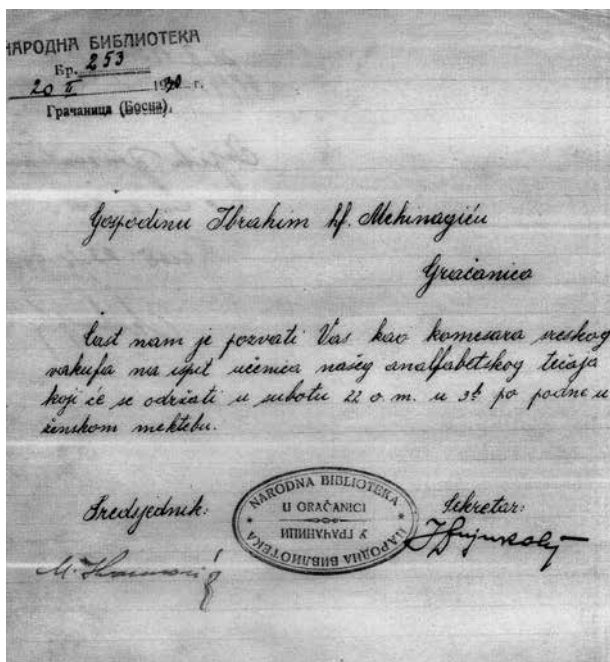 НАРОДНА БИБЛИОТЕКА
Бр. 253
20 II 1930 г.
Грачаница (Босна).
Gospodinu Ibrahim hf. Mehinagiću
Gračanica
Čast nam je pozvati Vas kao komesara sreskog
vakufa na ispit učenica našeg analfabetskog tečaja
koji će se održati u subotu 22 o. m. u 3h po podne u
ženskom mektebu.
Predsjednik:
Sekretar:
NARODNA BIBLIOTEKA
U GRAČANICI
У ГРАЧАНИЦИ
НАРОДНА БИБЛИОТЕКА